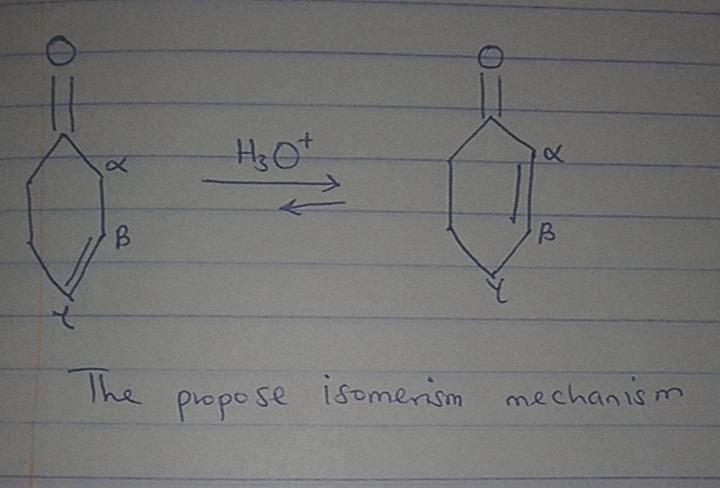 O O
H₃O⁺
α α
β β
γ γ
The propose isomerism mechanism